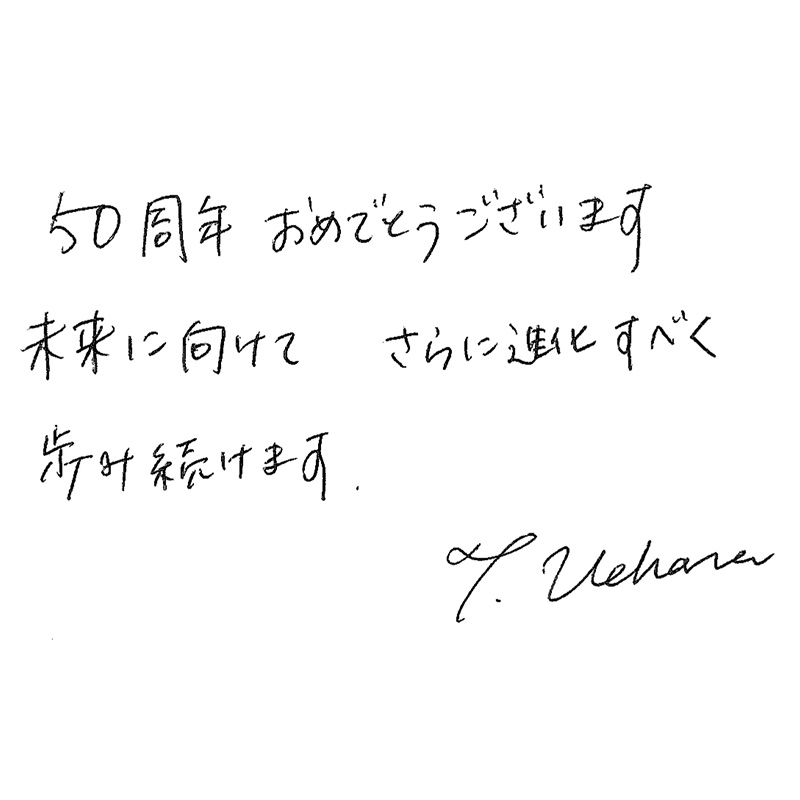 50周年 おめでとうございます
未来に向けて さらに進化すべく
歩み続けます.
T. Uehara